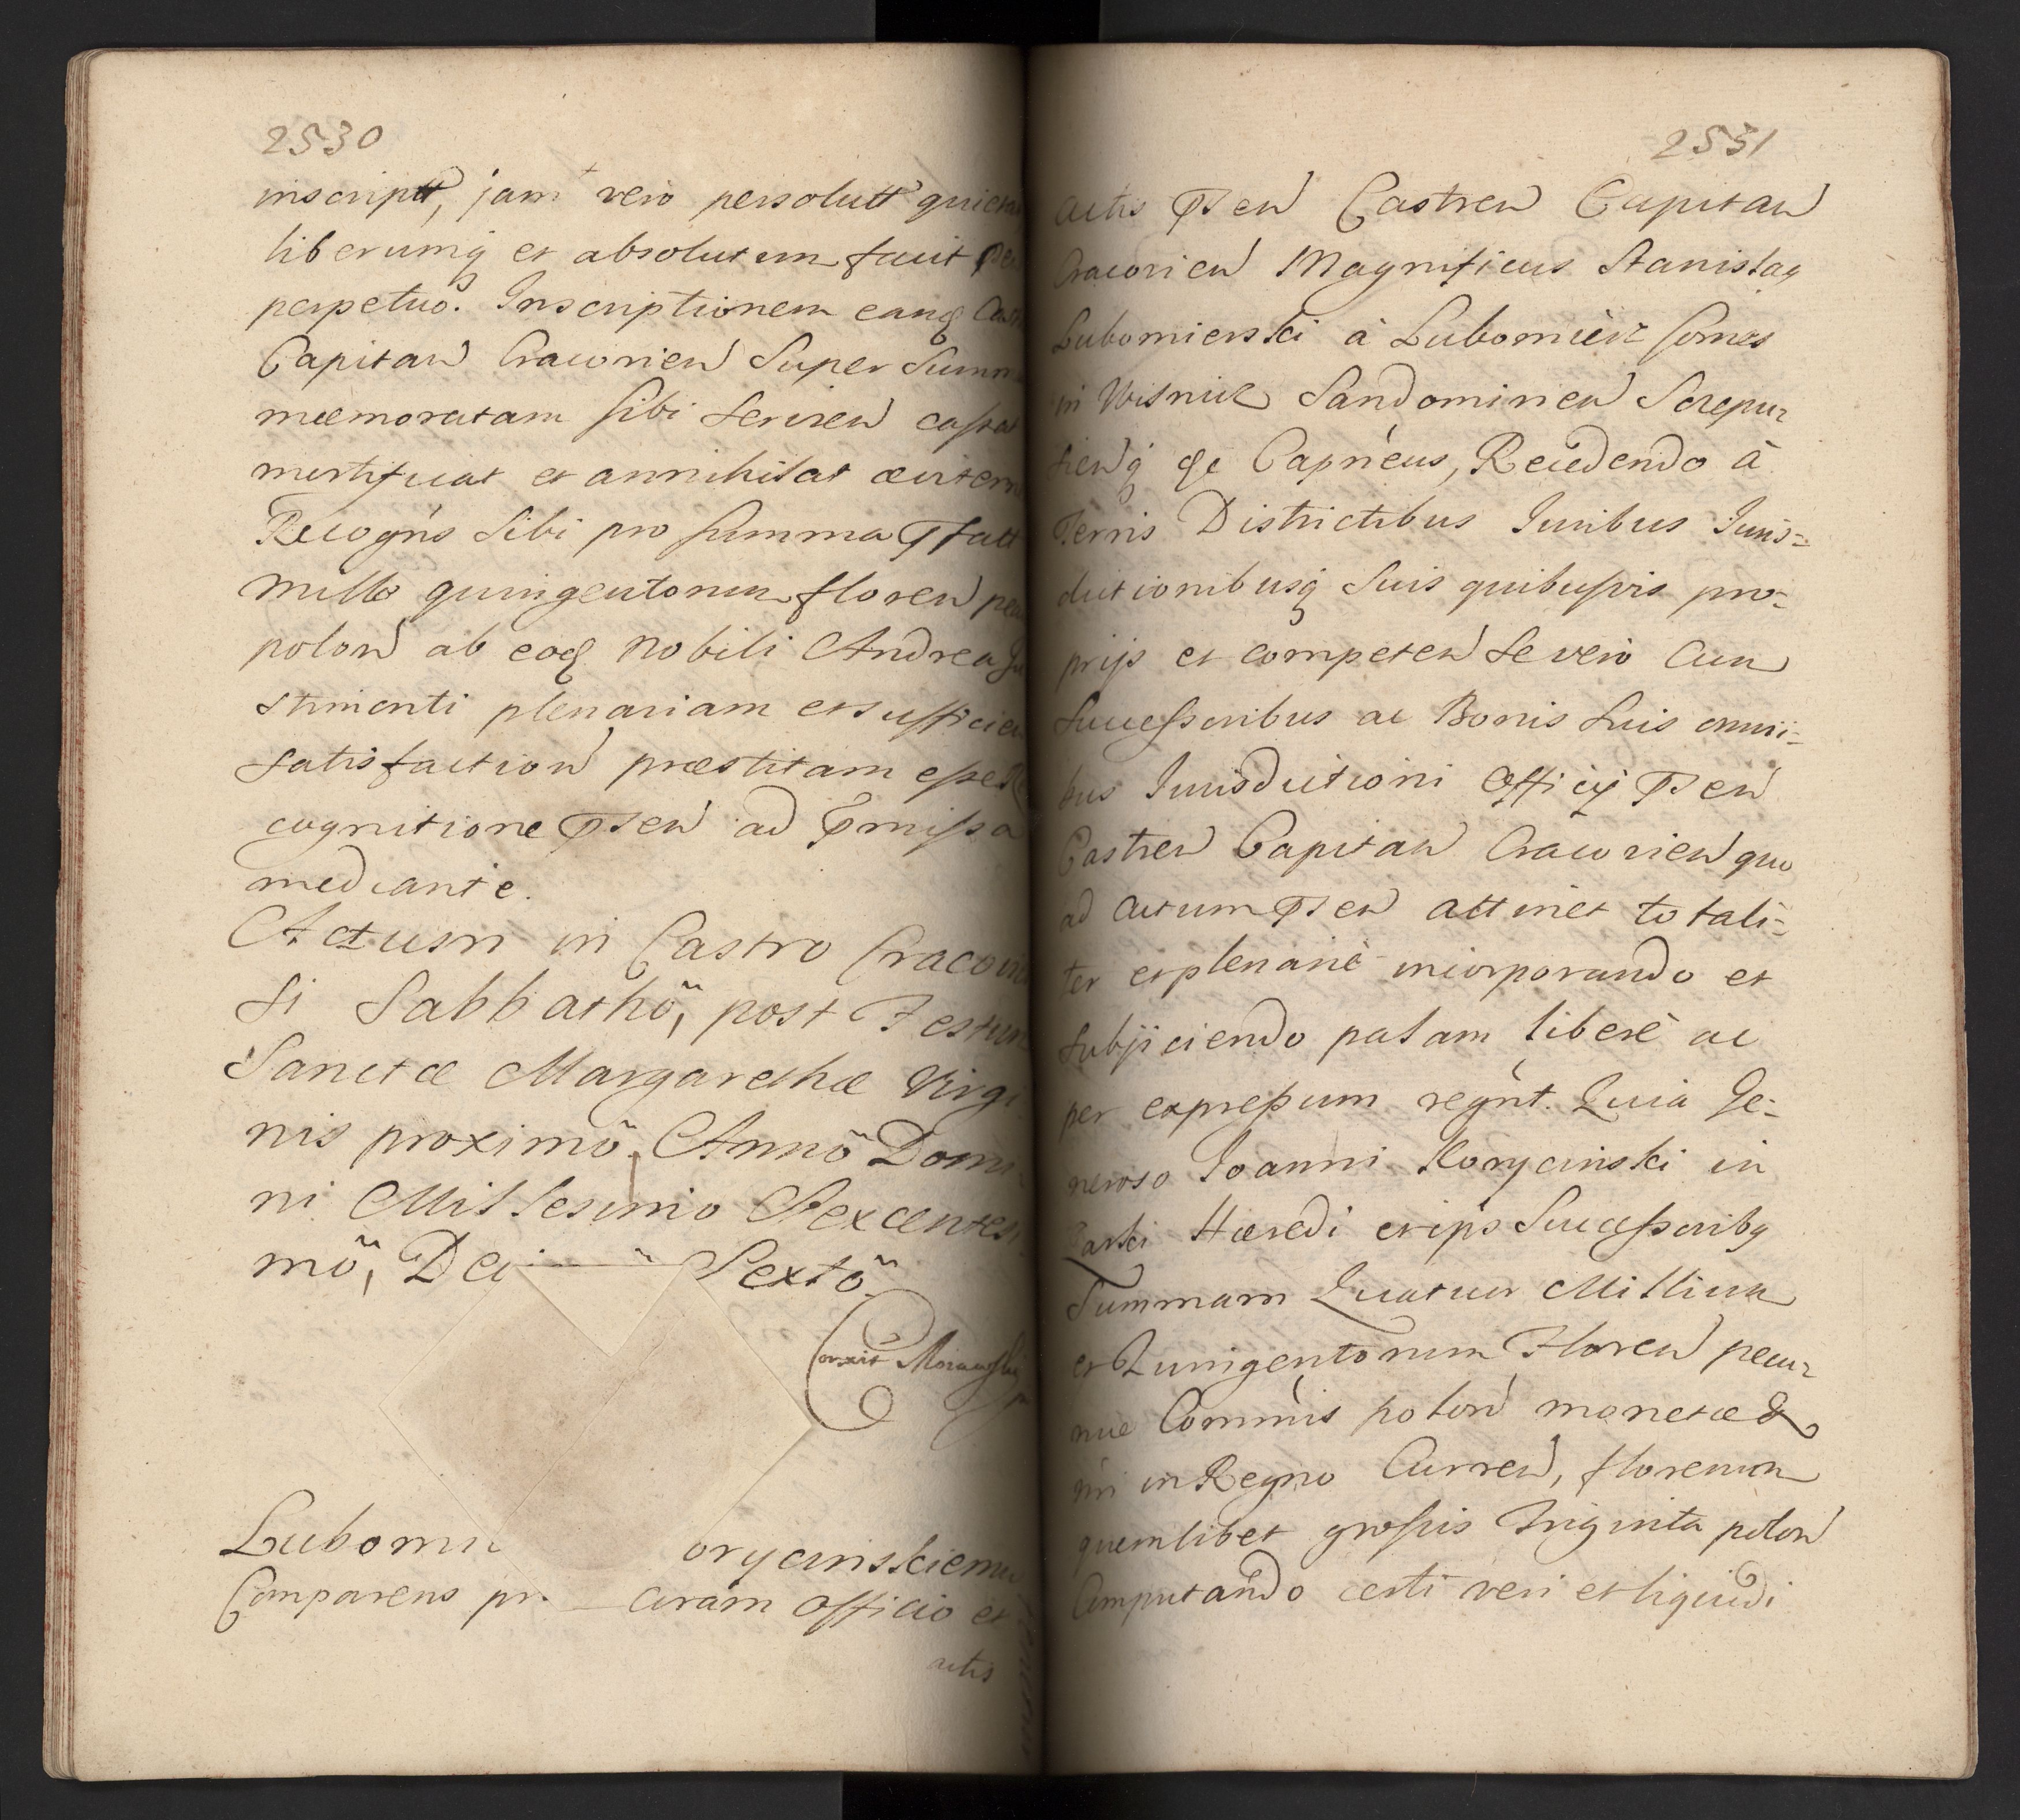 2530
inscriptt, jam vero persolutt
liberumq et absolutum facit
perpetuo. Inscriptionem eanq
Capitan Cracovien Super
mæmoratam sibi Servien
mortificat et annihilat
Recogns Sibi pro summa
mille quingentorum floren
polon ab eoq Nobili Andrea
stimonti plenariam et
satisfaction præstitam esse
cognitione Psen ad Pmissa
mediante.
Actum in Castro
si Sabbathõ, post Festum
Sanctæ Margarethæ Virgi
nis proximõ. Annõ Domi
ni Millesimo Sexcentesi
mõ, Sextõ.
Lubomi orycinskiemu
Comparens coram officio et
actis
2531
actis Psen Castren Capitan
Cracovien Magnificus Stanislaq
Lubomierski à Lubomierz Comes
in Wisnicz Sandomirien Scepu
tienq &c Capneus, Recedendo à
Terris Districtibus Iuribus Iuris=
dictionibusq Suis quibusvis pro=
prijs et competen se vero Cum
Successoribus ac Bonis Suis omni=
bus Iurisdictioni Officij Psen
Castren Capitan Cracovien quo
ad actum Psen attinet totali=
ter et plenariè incorporando et
subjiciendo palam liberè ac
per expressum regnt. Quia Ge=
neroso Joanni Korycinski in
Haeredi et ips Successoribq
Summam Quatuor Millium
et Quingentorum Floren pecu
niæ Commis polon monetæ &
nri in Regno Curren, florenum
quemlibet grossis Triginta polon
Computando certi veri et liquidi